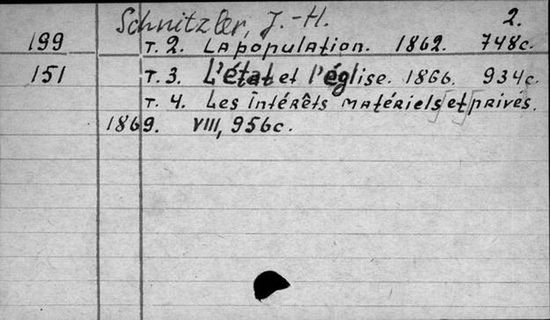 Schnitzler, J.-H. 2.
199 T. 2. La population. 1862. 748c.
151 T. 3. L'état et l'église. 1866. 934c.
T. 4. Les intérêts matériels et privés.
1869. VIII, 956c.